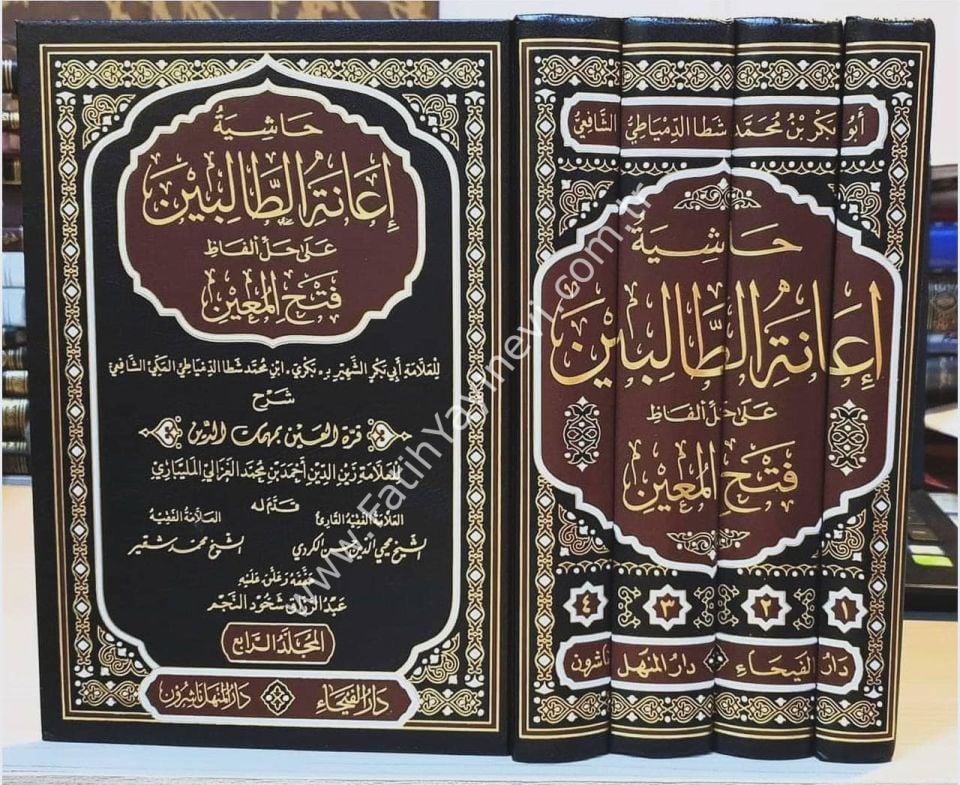 حَاشِيَةُ
إِعَانَةُ الطَّالِبِيْنَ
عَلَى حَلِّ أَلْفَاظِ
فَتْحِ المُعِيْنِ
لِلعَلَّامَةِ أَبِي بَكْرٍ الشَّهِيْرِ بِـ «بَكْرِي» ابْنِ مُحَمَّد شَطَا الدِّمْيَاطِيِّ المَكِّيِّ الشَّافِعِيِّ
شَرْح
قرة العين بمهمات الدين
لِلعَلَّامَةِ زَيْنِ الدِّيْنِ أَحْمَد بن مُحَمَّد الغَزَالِي المَلَيْبَارِي
قَدَّمَ لَهُ
العَلَّامَةُ الفَقِيْهُ القَارِئُ العَلَّامَةُ الفَقِيْهُ
الشَّيْخُ مُحْيِي الدِّيْن حسن الكُرْدِي الشَّيْخُ مُحَمَّد شُقَيْر
حَقَّقَهُ وَعَلَّقَ عَلَيْهِ
عَبْدُ الرَّزَّاقِ شَحُّود النَّجْم
المُجَلَّدُ الرَّابِعُ
دَارُ الفَيْحَاءِ دَارُ المَنْهَلِ نَاشِرُون
أَبُو بَكْرِ بْنُ مُحَمَّد شَطَا الدِّمْيَاطِيُّ الشَّافِعِيُّ
حَاشِيَةُ
إِعَانَةُ الطَّالِبِيْنَ
عَلَى حَلِّ أَلْفَاظِ
فَتْحِ المُعِيْنِ
١ ٢ ٣ ٤
دَارُ الفَيْحَاءِ دَارُ المَنْهَلِ نَاشِرُون
www.FatihYayinevi.com.tr